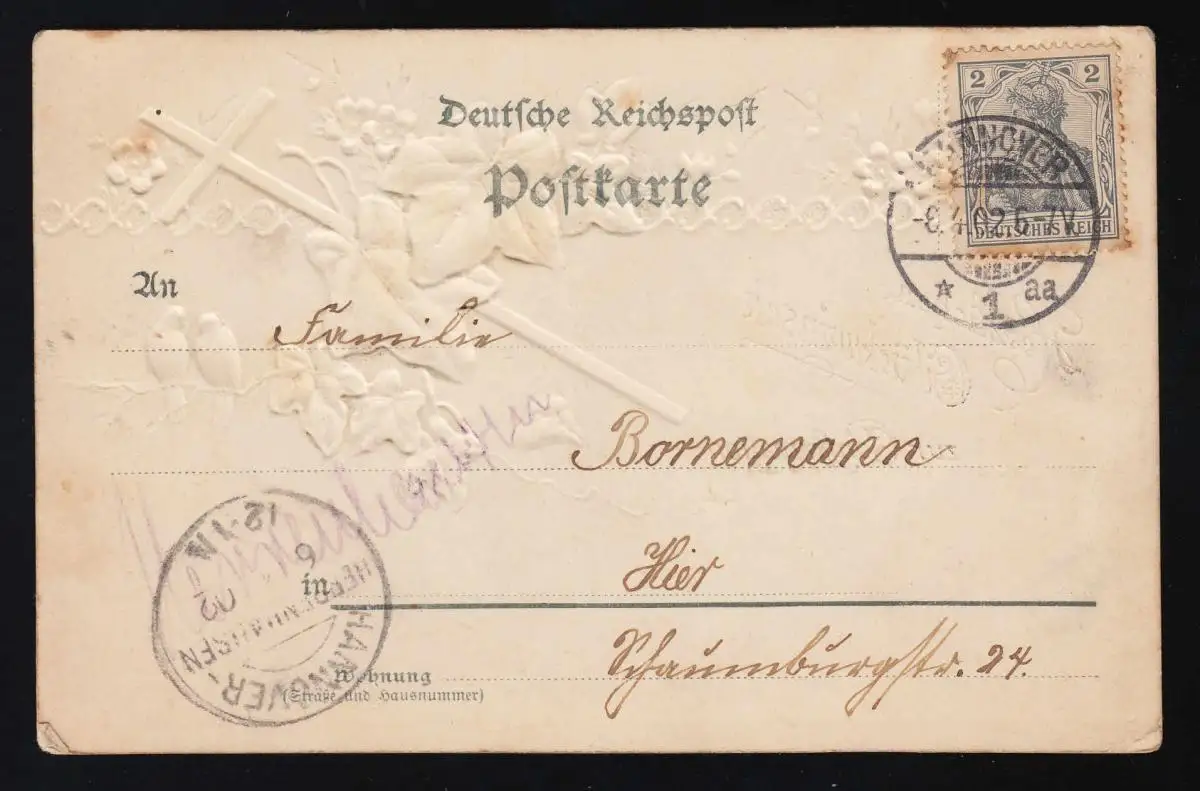 Deutsche Reichspost
Postkarte
2 2
DEUTSCHES REICH
HANNOVER
-8.4.02.6-7V.
* 1 aa
An
Familie
Bornemann
in
Hier
Schaumburgstr. 24.
Wohnung
(Straße und Hausnummer)
HANNOVER-
HERRENHAUSEN
02
12-1N